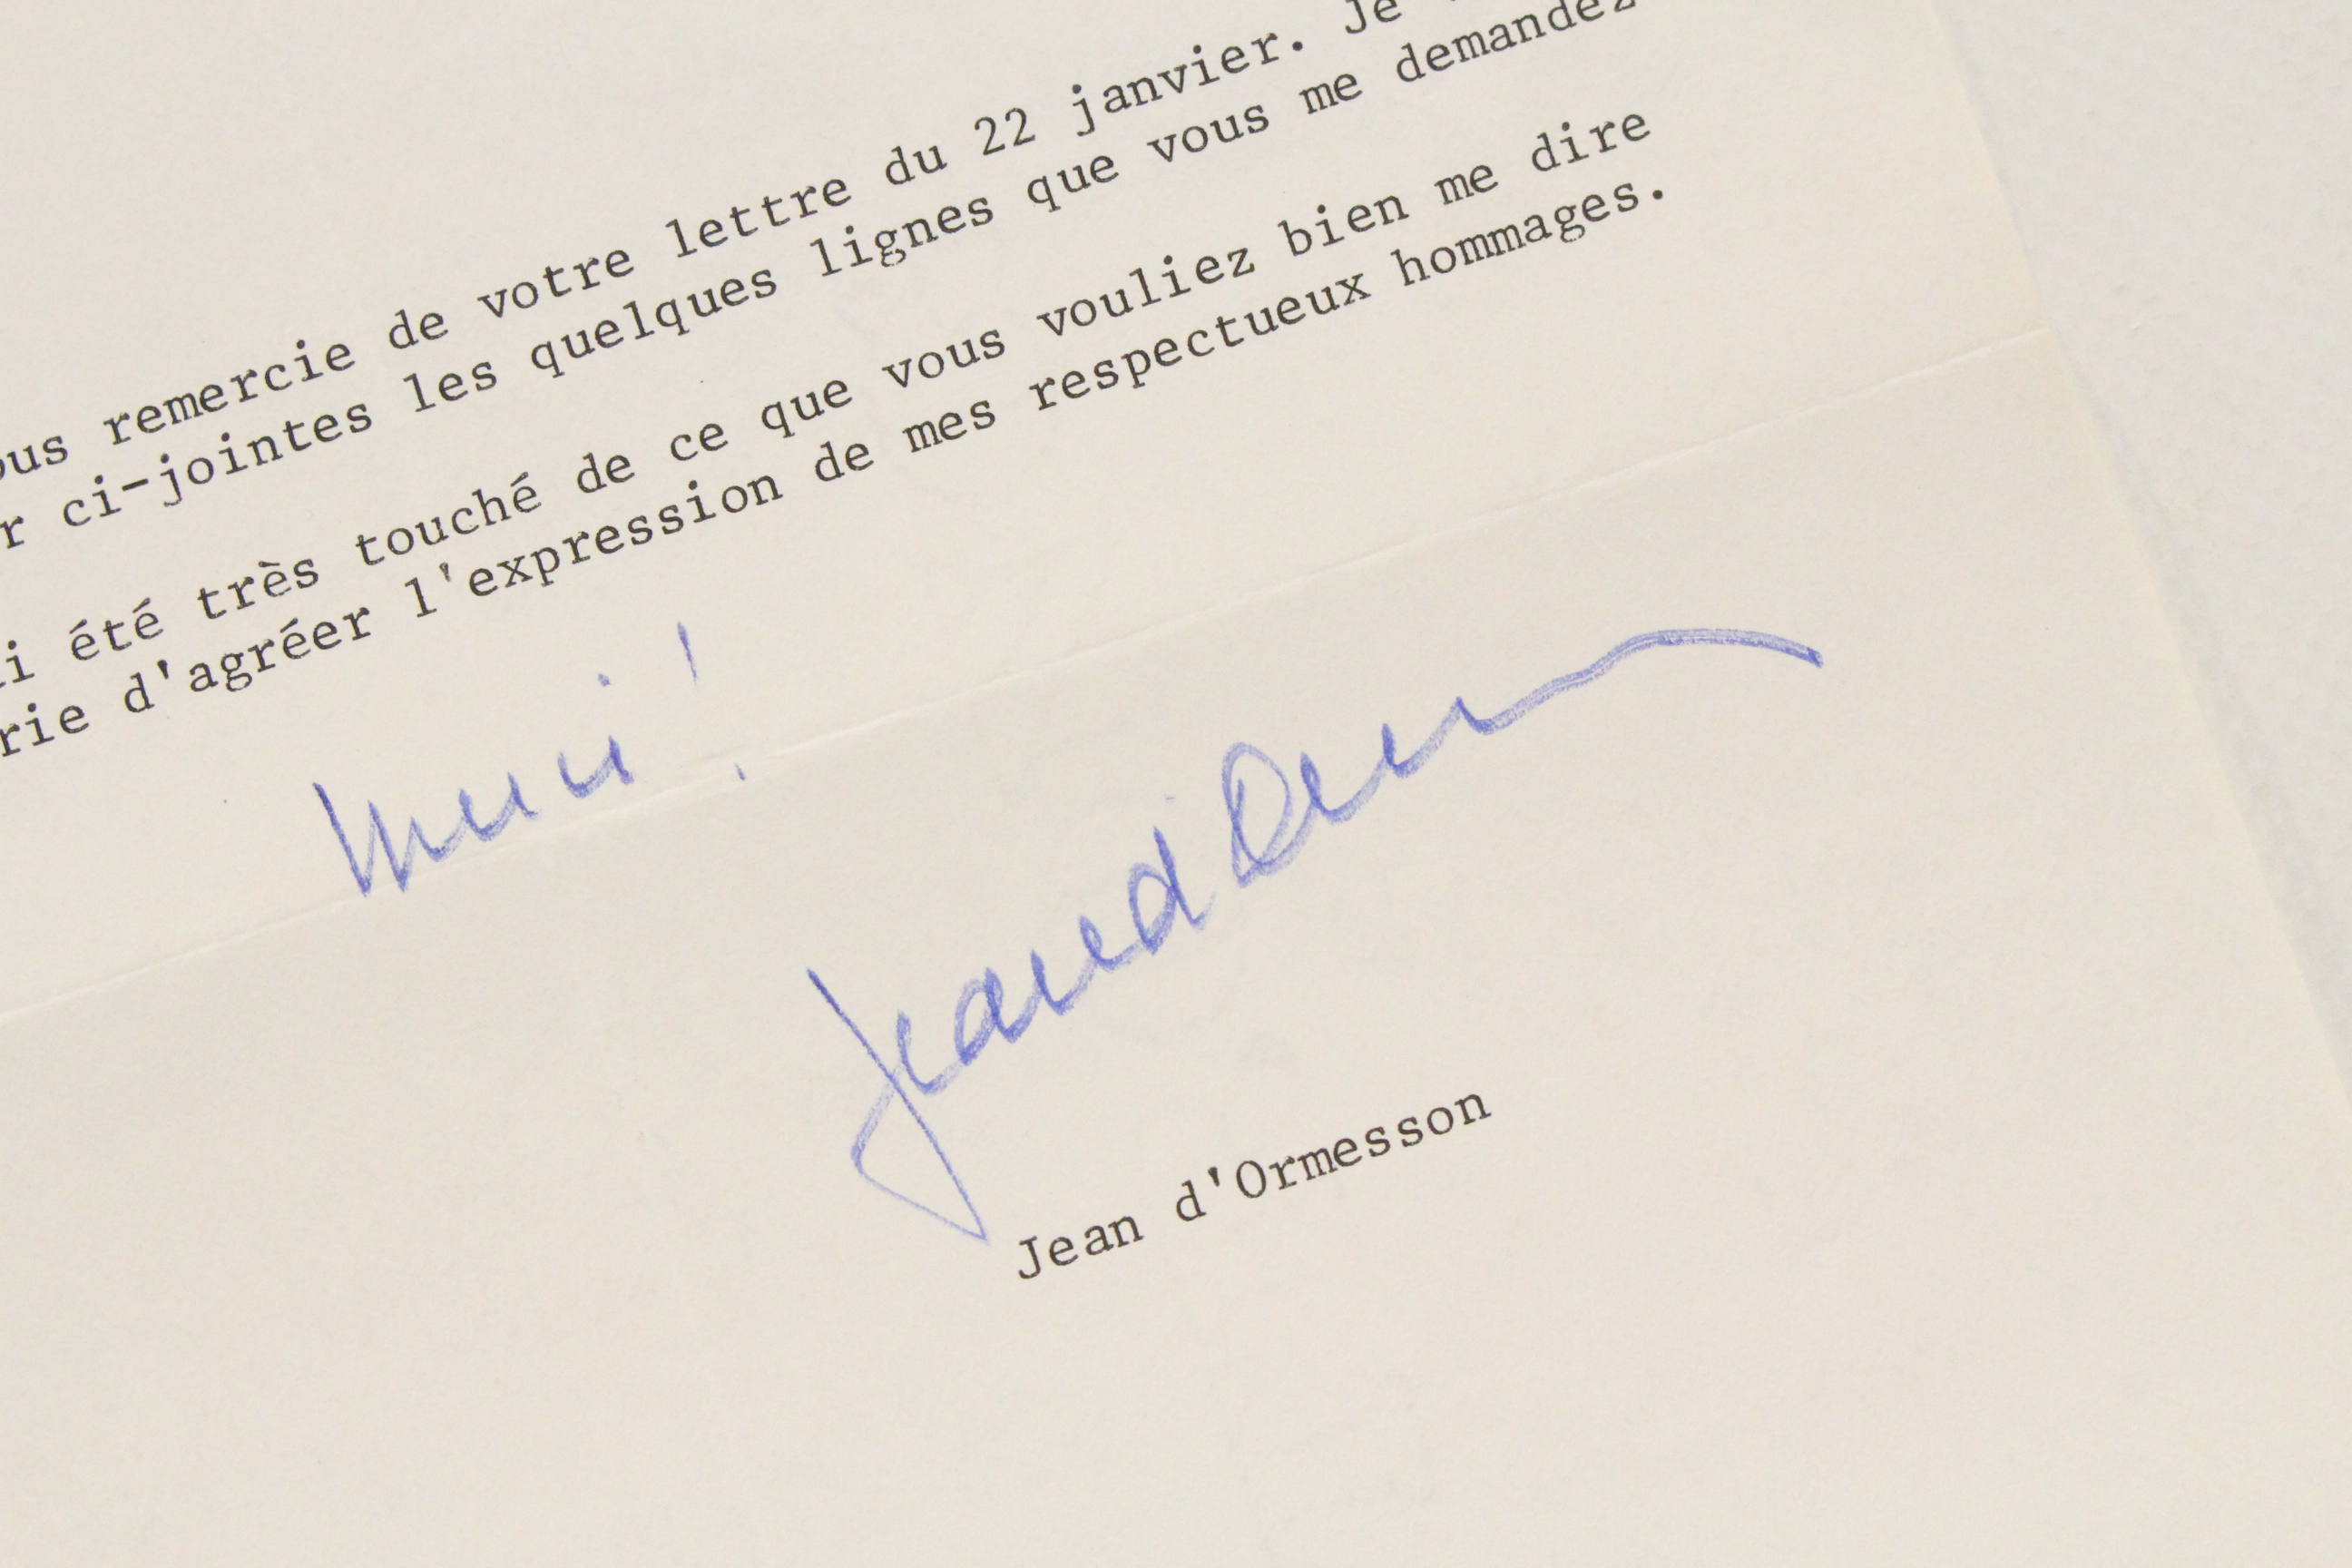 ous remercie de votre lettre du 22 janvier. Je
r ci-jointes les quelques lignes que vous me demandez
i été très touché de ce que vous vouliez bien me dire
rie d'agréer l'expression de mes respectueux hommages.
Merci !
Jean d'Orm
Jean d'Ormesson